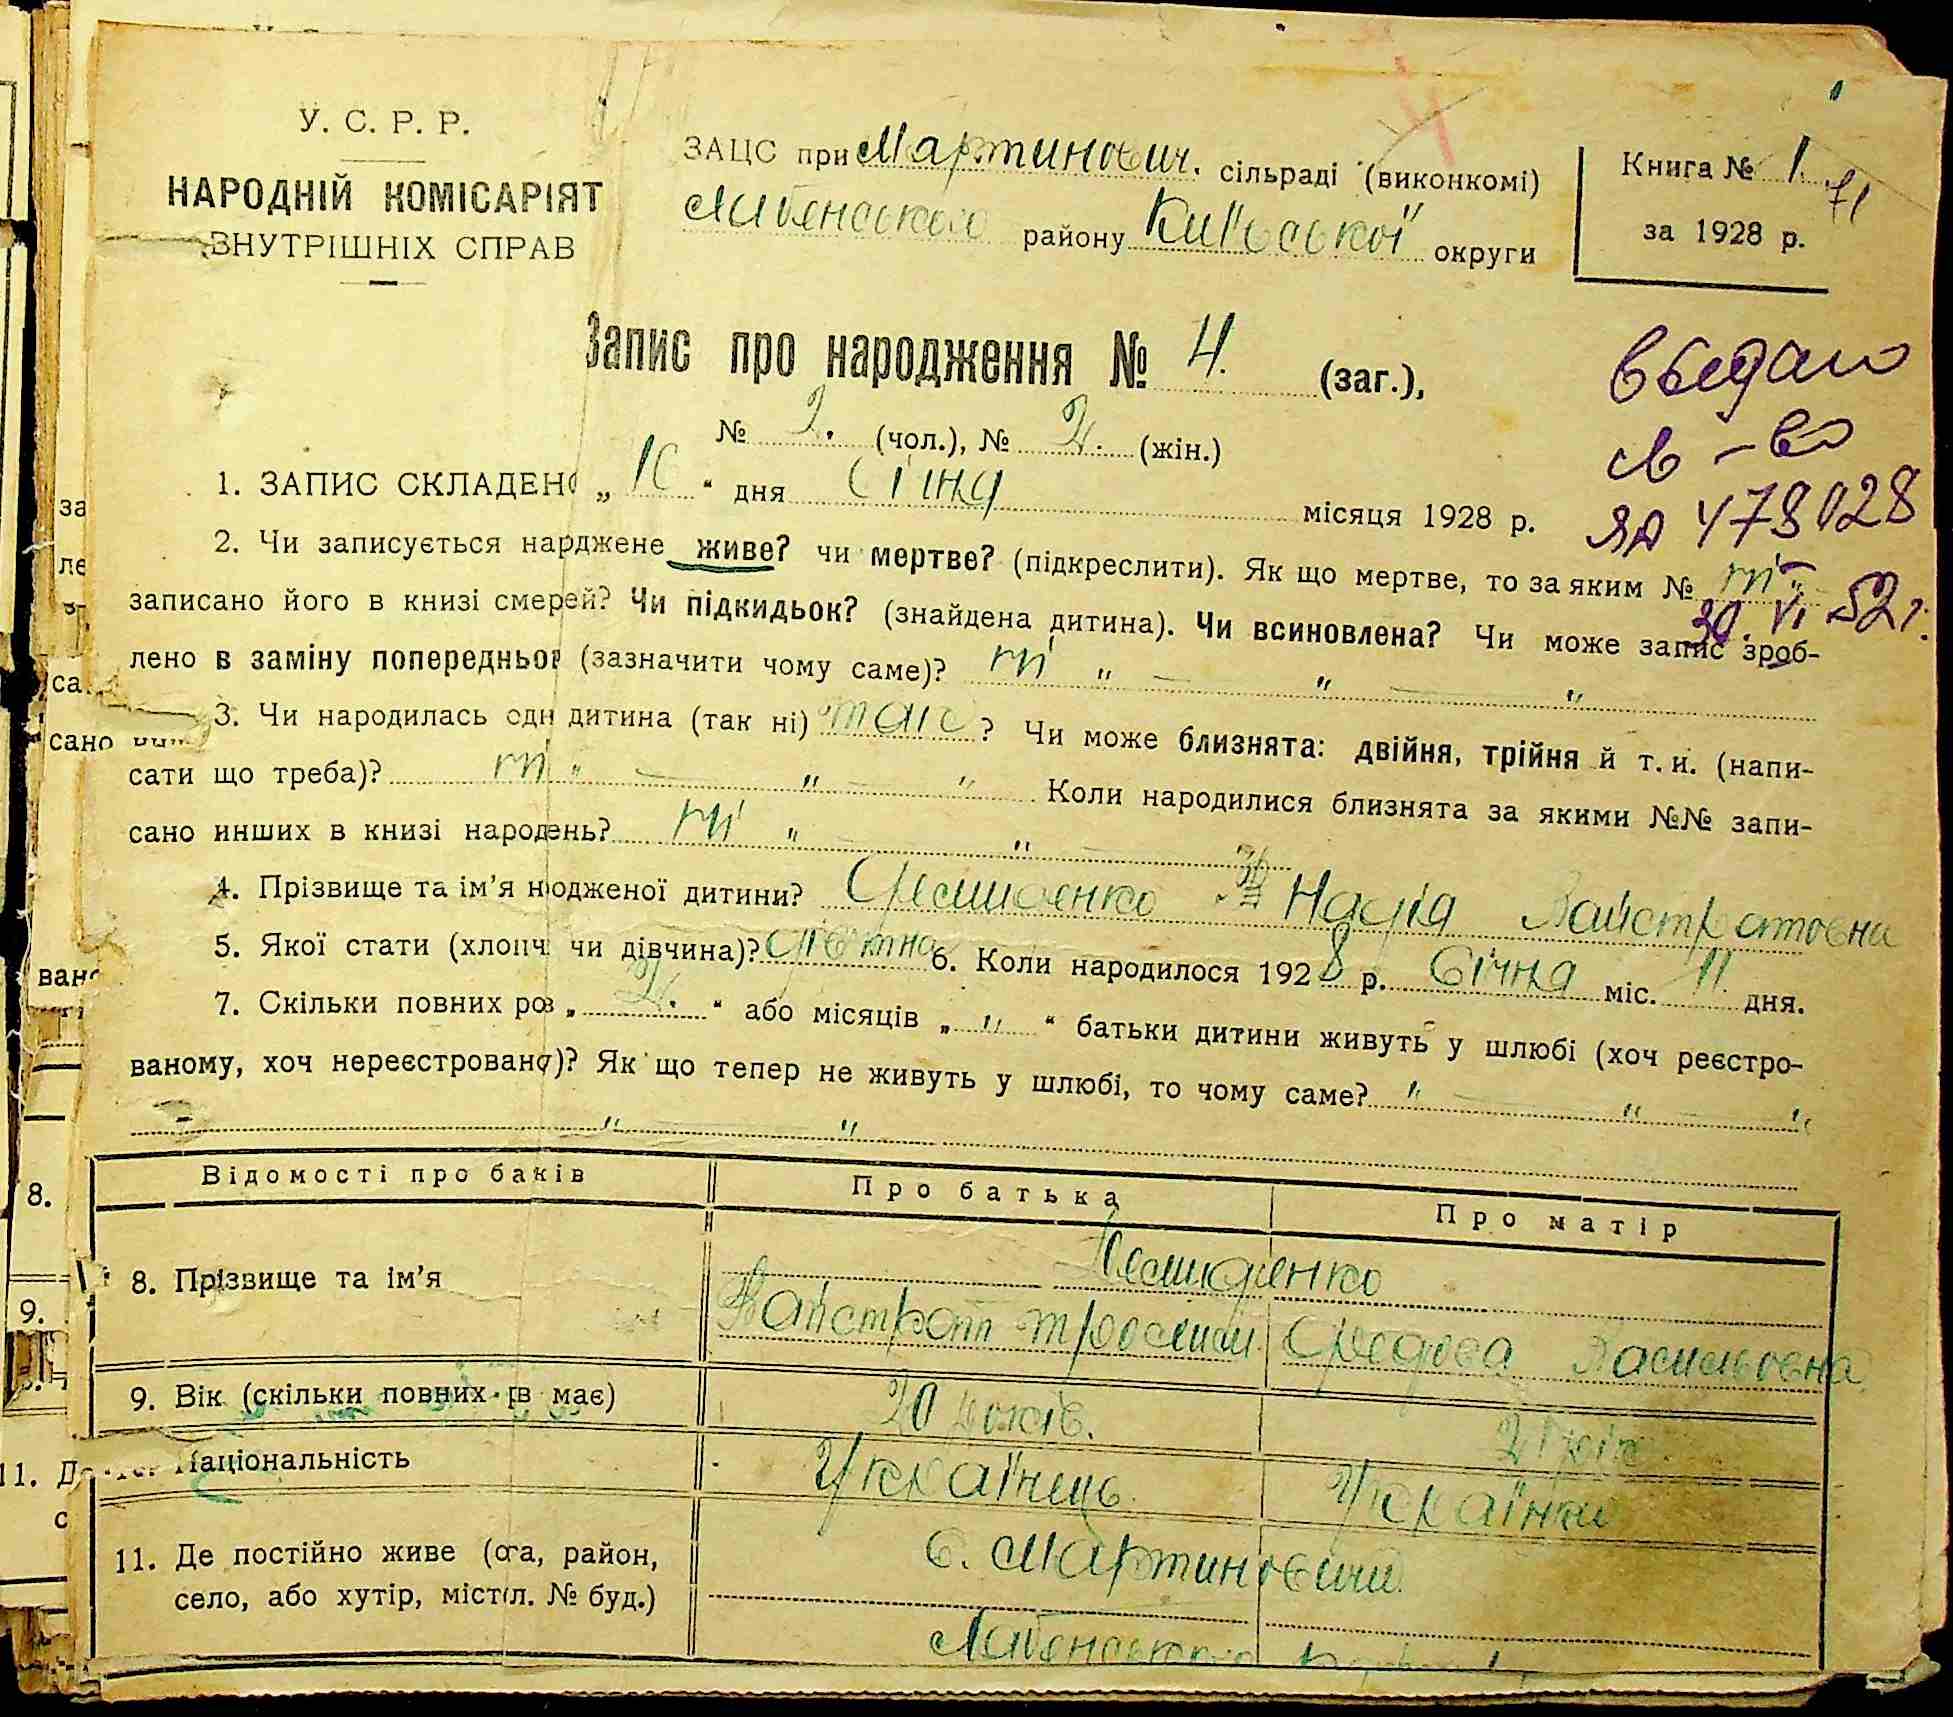 У. С. Р. Р.
НАРОДНІЙ КОМІСАРІЯТ
ВНУТРІШНІХ СПРАВ
ЗАЦС при Мартинович. сільраді (виконкомі)
району Київської округи
Книга № 1.
71
за 1928 р.
Запис про народження № 4. (заг.),
№ 2. (чол.), № 2. (жін.)
1. ЗАПИС СКЛАДЕНО „ “ дня Січня місяця 1928 р.
ЯА 479028
30. VI 52 г.
2. Чи записується нарджене живе? чи мертве? (підкреслити). Як що мертве, то за яким № ні "
записано його в книзі смерей? Чи підкидьок? (знайдена дитина). Чи всиновлена? Чи може запис зроб-
лено в заміну попередньої (зазначити чому саме)? ні " — " — "
3. Чи народилась одн дитина (так ні) так? Чи може близнята: двійня, трійня й т. и. (напи-
сати що треба)? ні " — " — " Коли народилися близнята за якими №№ запи-
сано инших в книзі народень? ні " — " —
4. Прізвище та ім’я нюдженої дитини? Надія
5. Якої стати (хлопч чи дівчина)? 6. Коли народилося 1928 р. Січня міс. 11 дня.
7. Скільки повних роз „ 2. “ або місяців „ " “ батьки дитини живуть у шлюбі (хоч реєстро-
ваному, хоч нереєстровану)? Як що тепер не живуть у шлюбі, то чому саме? " — " — "
— " — "
Відомості про баків Про батька Про матір
8. Прізвище та ім’я
Василевна
9. Вік (скільки повних рв має) 20 років. 21 рік.
Національність Українець Українка
11. Де постійно живе (ога, район, с. Мартиновичі
село, або хутір, міст л. № буд.)
8.
9.
11. Д